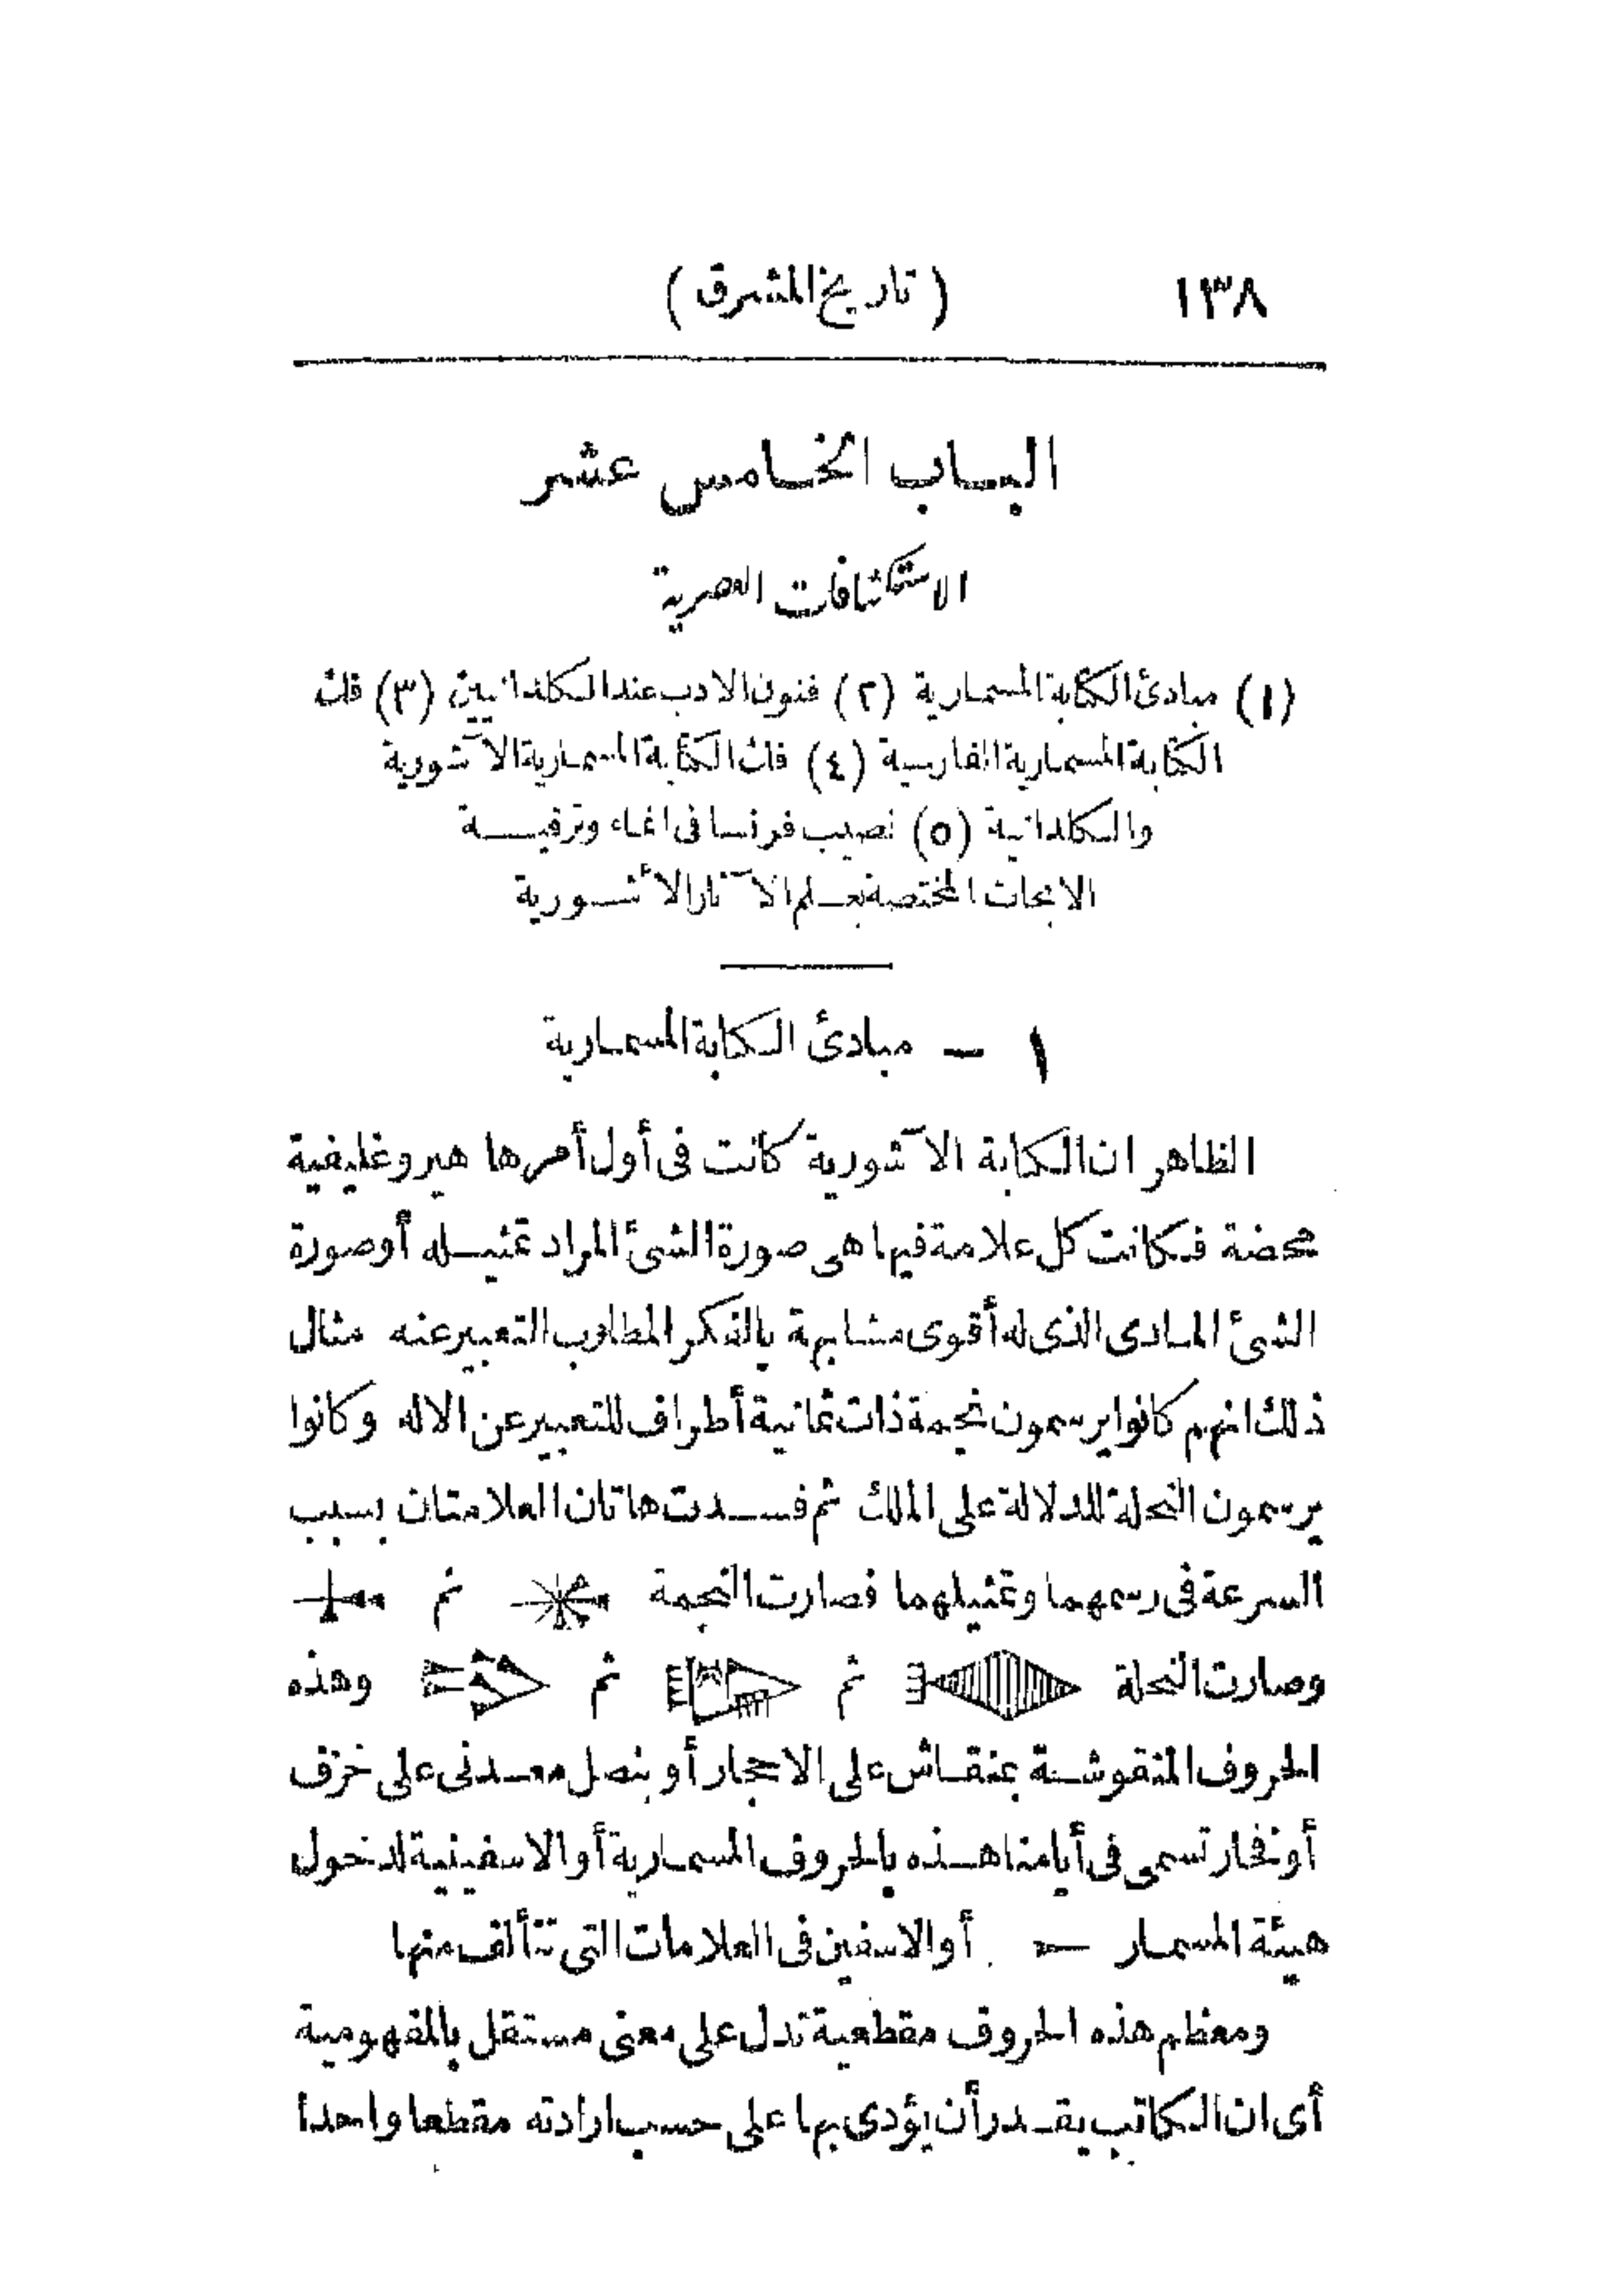 ١٣٨ (تاريخ المشرق)
الباب الخامس عشر
الاستكشافات العصرية
(١) مبادئ الكتابة المسمارية (٢) فنون الادب عند الكلدانيين (٣) فك
الكتابة المسمارية الفارسية (٤) فك الكتابة المسمارية الآشورية
والكلدانية (٥) نصيب فرنسا فى انماء وترقية
الابحاث المختصة بعلم الآثار الأشورية
١ - مبادئ الكتابة المسمارية
الظاهر ان الكتابة الآشورية كانت فى أول أمرها هيروغليفية
محضة فكانت كل علامة فيها هى صورة الشئ المراد تمثيله أو صورة
الشئ المادى الذى له أقوى مشابهة بالفكر المطلوب التعبير عنه مثال
ذلك انهم كانوا يرسمون نجمة ذات ثمانية أطراف للتعبير عن الاله وكانوا
يرسمون النحلة للدلالة على الملك ثم فسدت هاتان العلامتان بسبب
السرعة فى رسمهما وتمثيلهما فصارت النجمة ثم
وصارت النحلة ثم ثم وهذه
الحروف المنقوشة بمنقاش على الاحجار أو بنصل معدنى على خزف
أو فخار تسمى فى أيامنا هذه بالحروف المسمارية أو الاسفينية لدخول
هيئة المسمار أو الاسفين فى العلامات التى تتألف منها
ومعظم هذه الحروف مقطعية تدل على معنى مستقل بالمفهومية
أى ان الكاتب يقدر أن يؤدى بها على حسب ارادته مقطعا واحدا